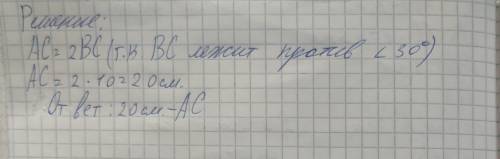 Решение:
AC = 2BC (т.к BC лежит против < 30°)
AC = 2 · 10 = 20 см.
Ответ : 20 см – AC